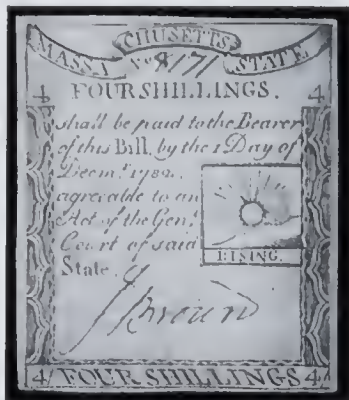 MASSA CHUSETTS STATE
No 8171
4 FOUR SHILLINGS. 4
shall be paid to the Bearer
of this Bill, by the 1 Day of
Decemr. 1782.
agreeable to an
Act of the Genl.
Court of said
State.
RISING.
4 FOUR SHILLINGS 4